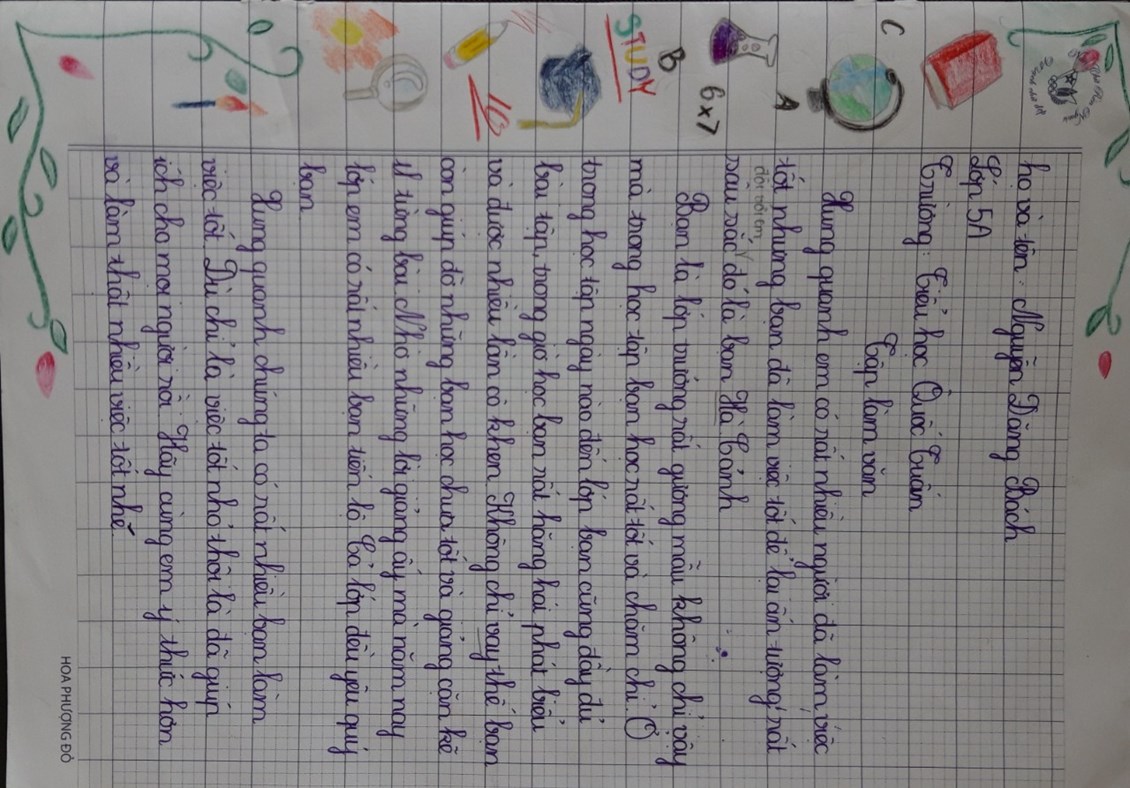 họ và tên: Nguyễn Đăng Bách
Lớp 5A
Trường: Tiểu học Quốc Tuấn
Tập làm văn
Xung quanh em có rất nhiều người đã làm việc
tốt nhưng bạn đã làm việc tốt để lại ấn tượng rất
đối với em
sâu sắc đó là bạn Hà Cảnh
Bạn là lớp trưởng rất gương mẫu không chỉ vậy
mà trong học tập bạn học rất tốt và chăm chỉ. Ở
trong học tập ngày nào đến lớp bạn cũng đầy đủ
bài tập, trong giờ học bạn rất hăng hái phát biểu
và được nhiều lần cô khen Không chỉ vay thế bạn
còn giúp đỡ những bạn học chưa tốt và giảng căn kẽ
từng bài Nhờ những lời giảng ấy mà năm nay
lớp em có rất nhiều bạn tiến bộ Cả lớp đều yêu quý
bạn
Xung quanh chúng ta có rất nhiều bạn làm
việc tốt Dù chỉ là việc tốt nhỏ thôi là đã giúp
ích cho mọi người rồi Hãy cùng em ý thức hơn
và làm thật nhiều việc tốt nhé
C
A
6x7
B
STUDY
HOA PHƯỢNG ĐỎ